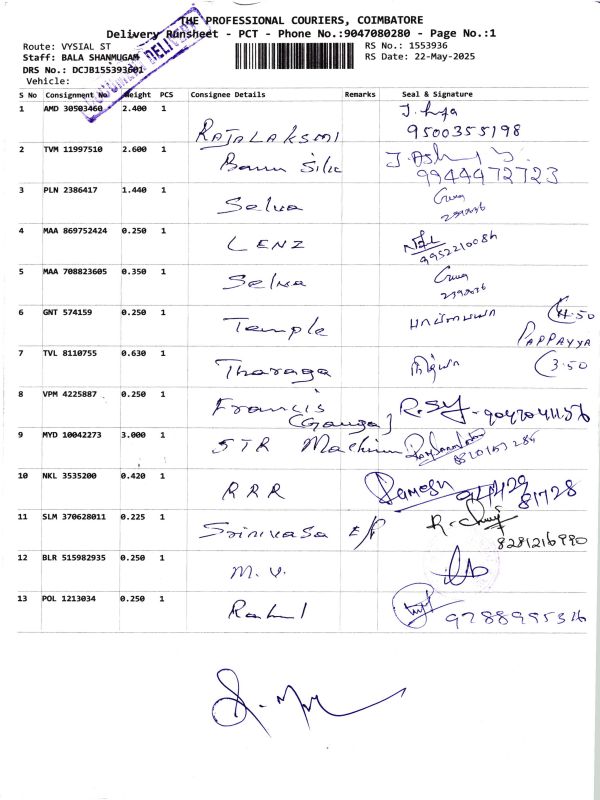 THE PROFESSIONAL COURIERS, COIMBATORE
Delivery Runsheet - PCT - Phone No.:9047080280 - Page No.:1
Route: VYSIAL ST
RS No.: 1553936
Staff: BALA SHANMUGAM
RS Date: 22-May-2025
DRS No.: DCJB155393601
Vehicle:
S No Consignment No Weight PCS Consignee Details Remarks Seal & Signature
1 AMD 30503460 2.400 1 RAJALAKSMI 9500355198
2 TVM 11997510 2.600 1 9944472723
3 PLN 2386417 1.440 1 Selva
4 MAA 869752424 0.250 1 LENZ 9952210084
5 MAA 708823605 0.350 1 Selva
6 GNT 574159 0.250 1 Temple 4.50
PAPPAYYA
7 TVL 8110755 0.630 1 Tharaga 3.50
8 VPM 4225887 0.250 1 Francis (Ganga)
9 MYD 10042273 3.000 1 STR
10 NKL 3535200 0.420 1 RRR Ramesh 94429 81728
11 SLM 370628011 0.225 1 Srinivasa E/P 8281216990
12 BLR 515982935 0.250 1 M.V.
13 POL 1213034 0.250 1 Rahul